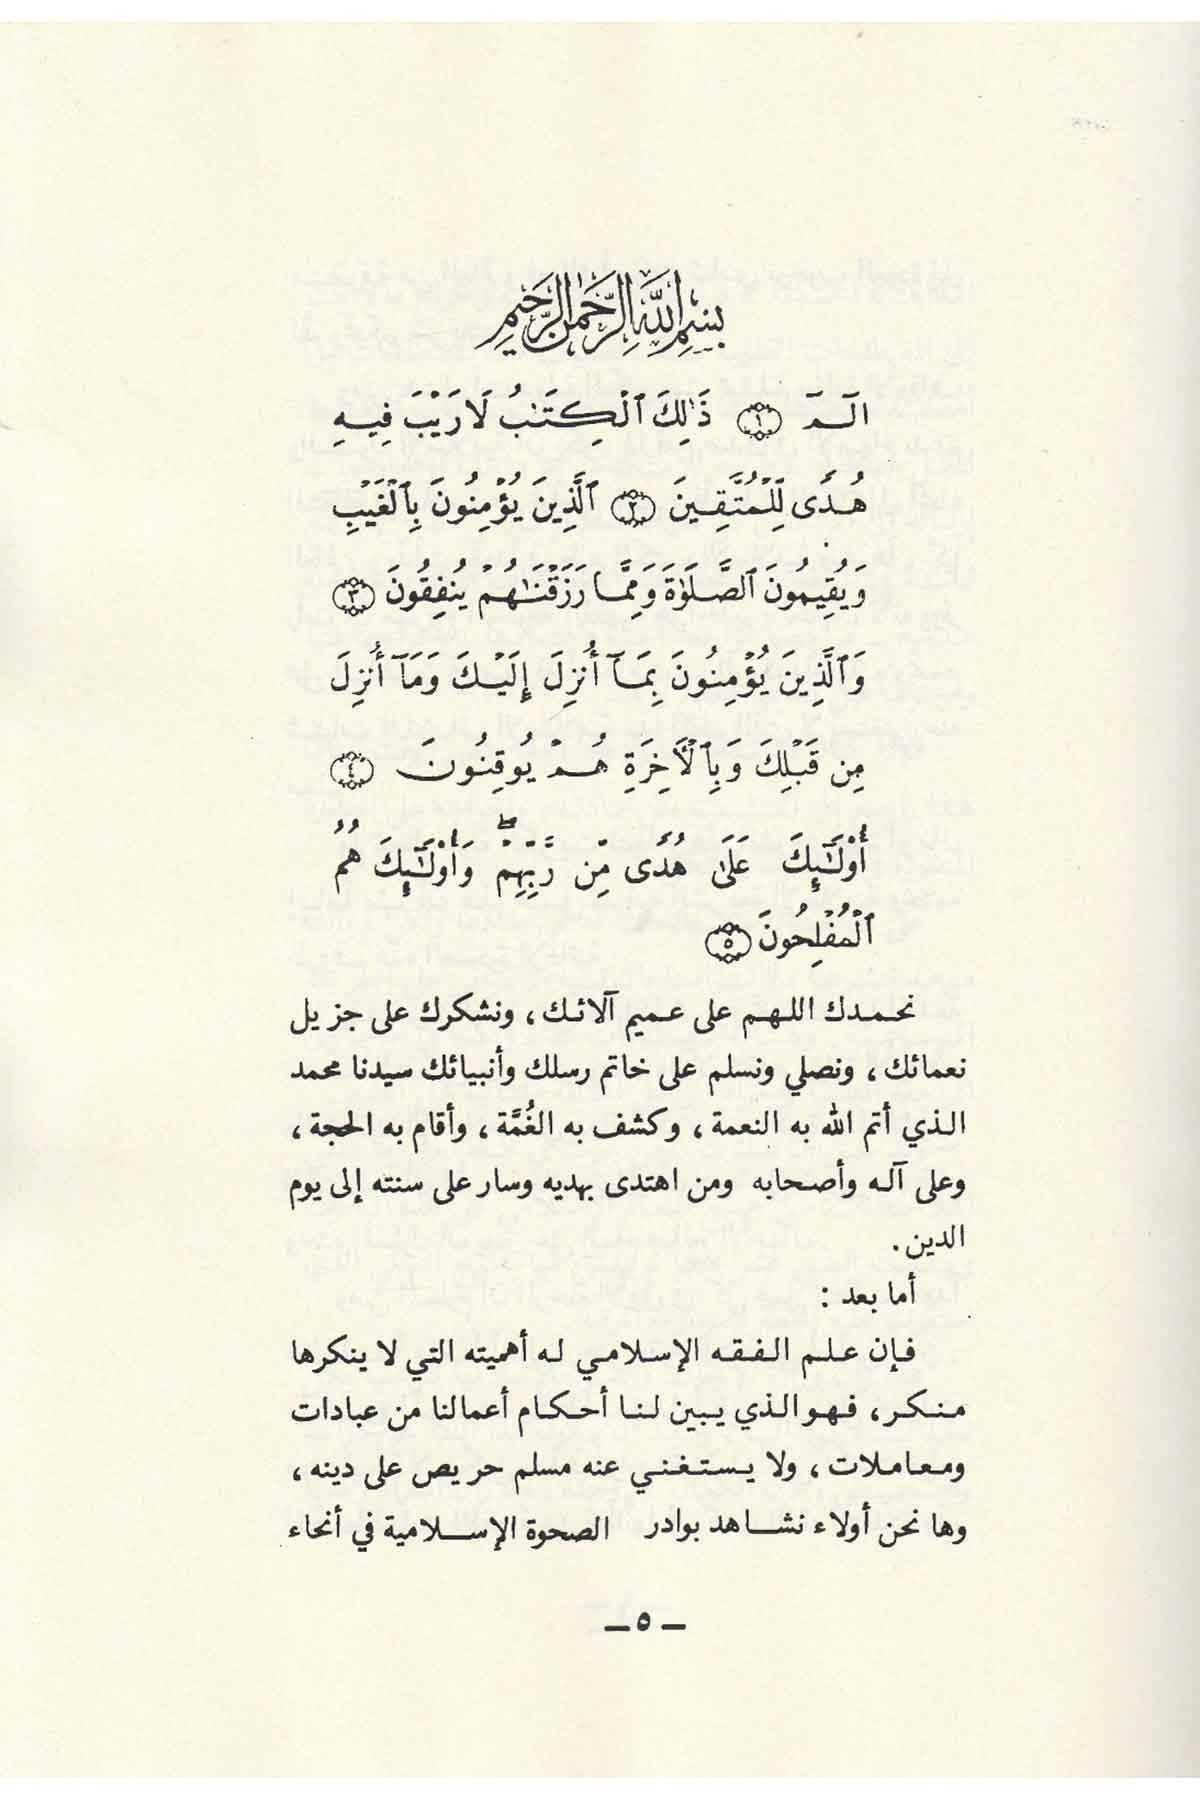 بِسْمِ اللَّهِ الرَّحْمَٰنِ الرَّحِيمِ
الٓمٓ ﴿١﴾ ذَٰلِكَ ٱلْكِتَٰبُ لَا رَيْبَ فِيهِ
هُدًى لِّلْمُتَّقِينَ ﴿٢﴾ ٱلَّذِينَ يُؤْمِنُونَ بِٱلْغَيْبِ
وَيُقِيمُونَ ٱلصَّلَوٰةَ وَمِمَّا رَزَقْنَٰهُمْ يُنفِقُونَ ﴿٣﴾
وَٱلَّذِينَ يُؤْمِنُونَ بِمَآ أُنزِلَ إِلَيْكَ وَمَآ أُنزِلَ
مِن قَبْلِكَ وَبِٱلْأَخِرَةِ هُمْ يُوقِنُونَ ﴿٤﴾
أُوْلَٰٓئِكَ عَلَىٰ هُدًى مِّن رَّبِّهِمْ ۖ وَأُوْلَٰٓئِكَ هُمُ
ٱلْمُفْلِحُونَ ﴿٥﴾
نحمدك اللهم على عميم آلائك، ونشكرك على جزيل
نعمائك، ونصلي ونسلم على خاتم رسلك وأنبيائك سيدنا محمد
الذي أتم الله به النعمة، وكشف به الغُمَّة، وأقام به الحجة،
وعلى آله وأصحابه ومن اهتدى بهديه وسار على سنته إلى يوم
الدين.
أما بعد :
فإن علم الفقه الإسلامي له أهميته التي لا ينكرها
منكر، فهو الذي يبين لنا أحكام أعمالنا من عبادات
ومعاملات، ولا يستغني عنه مسلم حريص على دينه،
وها نحن أولاء نشاهد بوادر الصحوة الإسلامية في أنحاء
ـ ٥ ـ